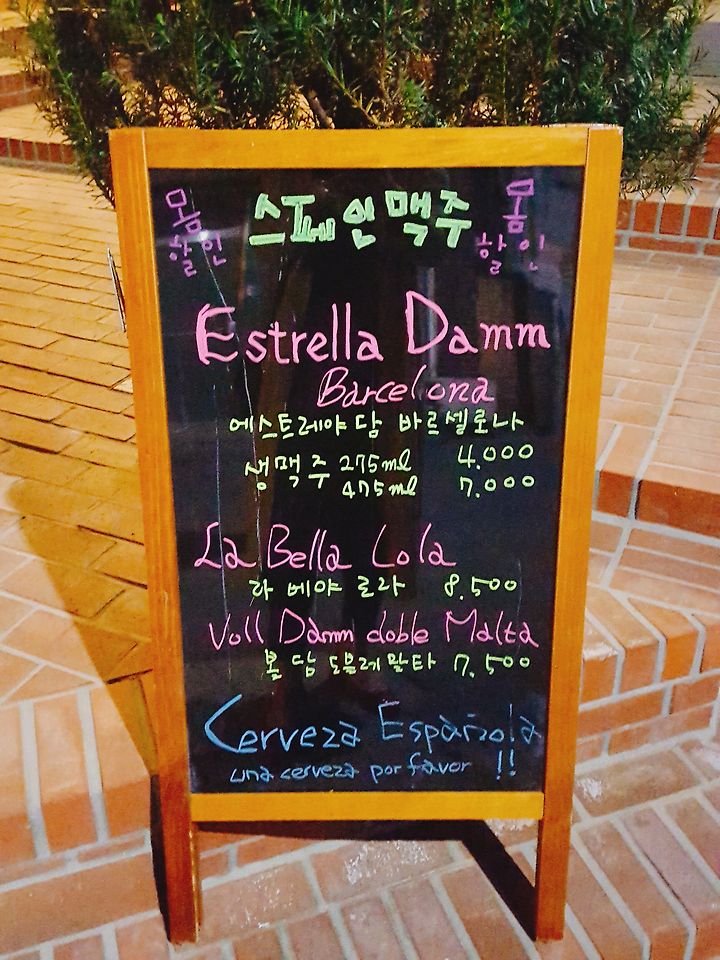 몸 스페인맥주 몸
할인 할인
Estrella Damm
Barcelona
에스트레야 담 바르셀로나
생맥주 275ml 4.000
475ml 7.000
La Bella Lola
라 베야 로라 8.500
Voll Damm doble Malta
볼 담 도블레 말타 7.500
Cerveza Española
una cerveza por favor !!